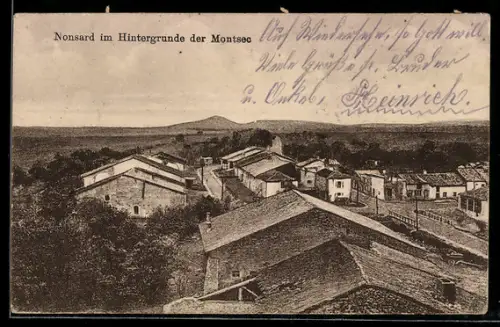 Nonsard im Hintergrunde der Montsec
Auf Wiedersehn, so Gott will
Viele Grüße s. Bruder
u. Onkel
Heinrich.